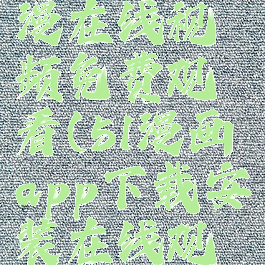 漫在线视
频免费观
看(51漫画
app下载安
装在线观